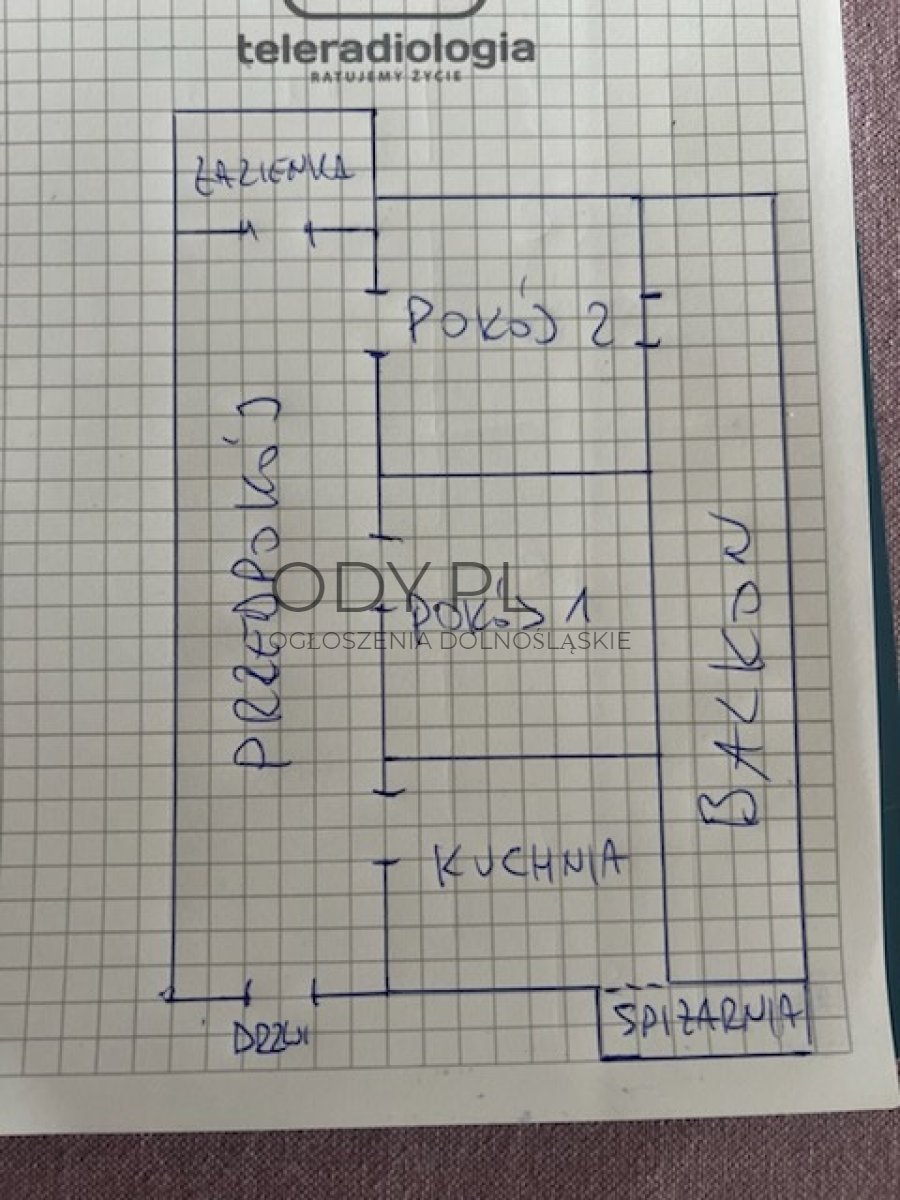 teleradiologia
RATUJEMY ŻYCIE
ŁAZIENKA
POKÓJ 2
PRZEDPOKÓJ
ODY.PL
POKÓJ 1
OGŁOSZENIA DOLNOŚLĄSKIE
BALKON
KUCHNIA
SPIŻARNIA
DRZWI